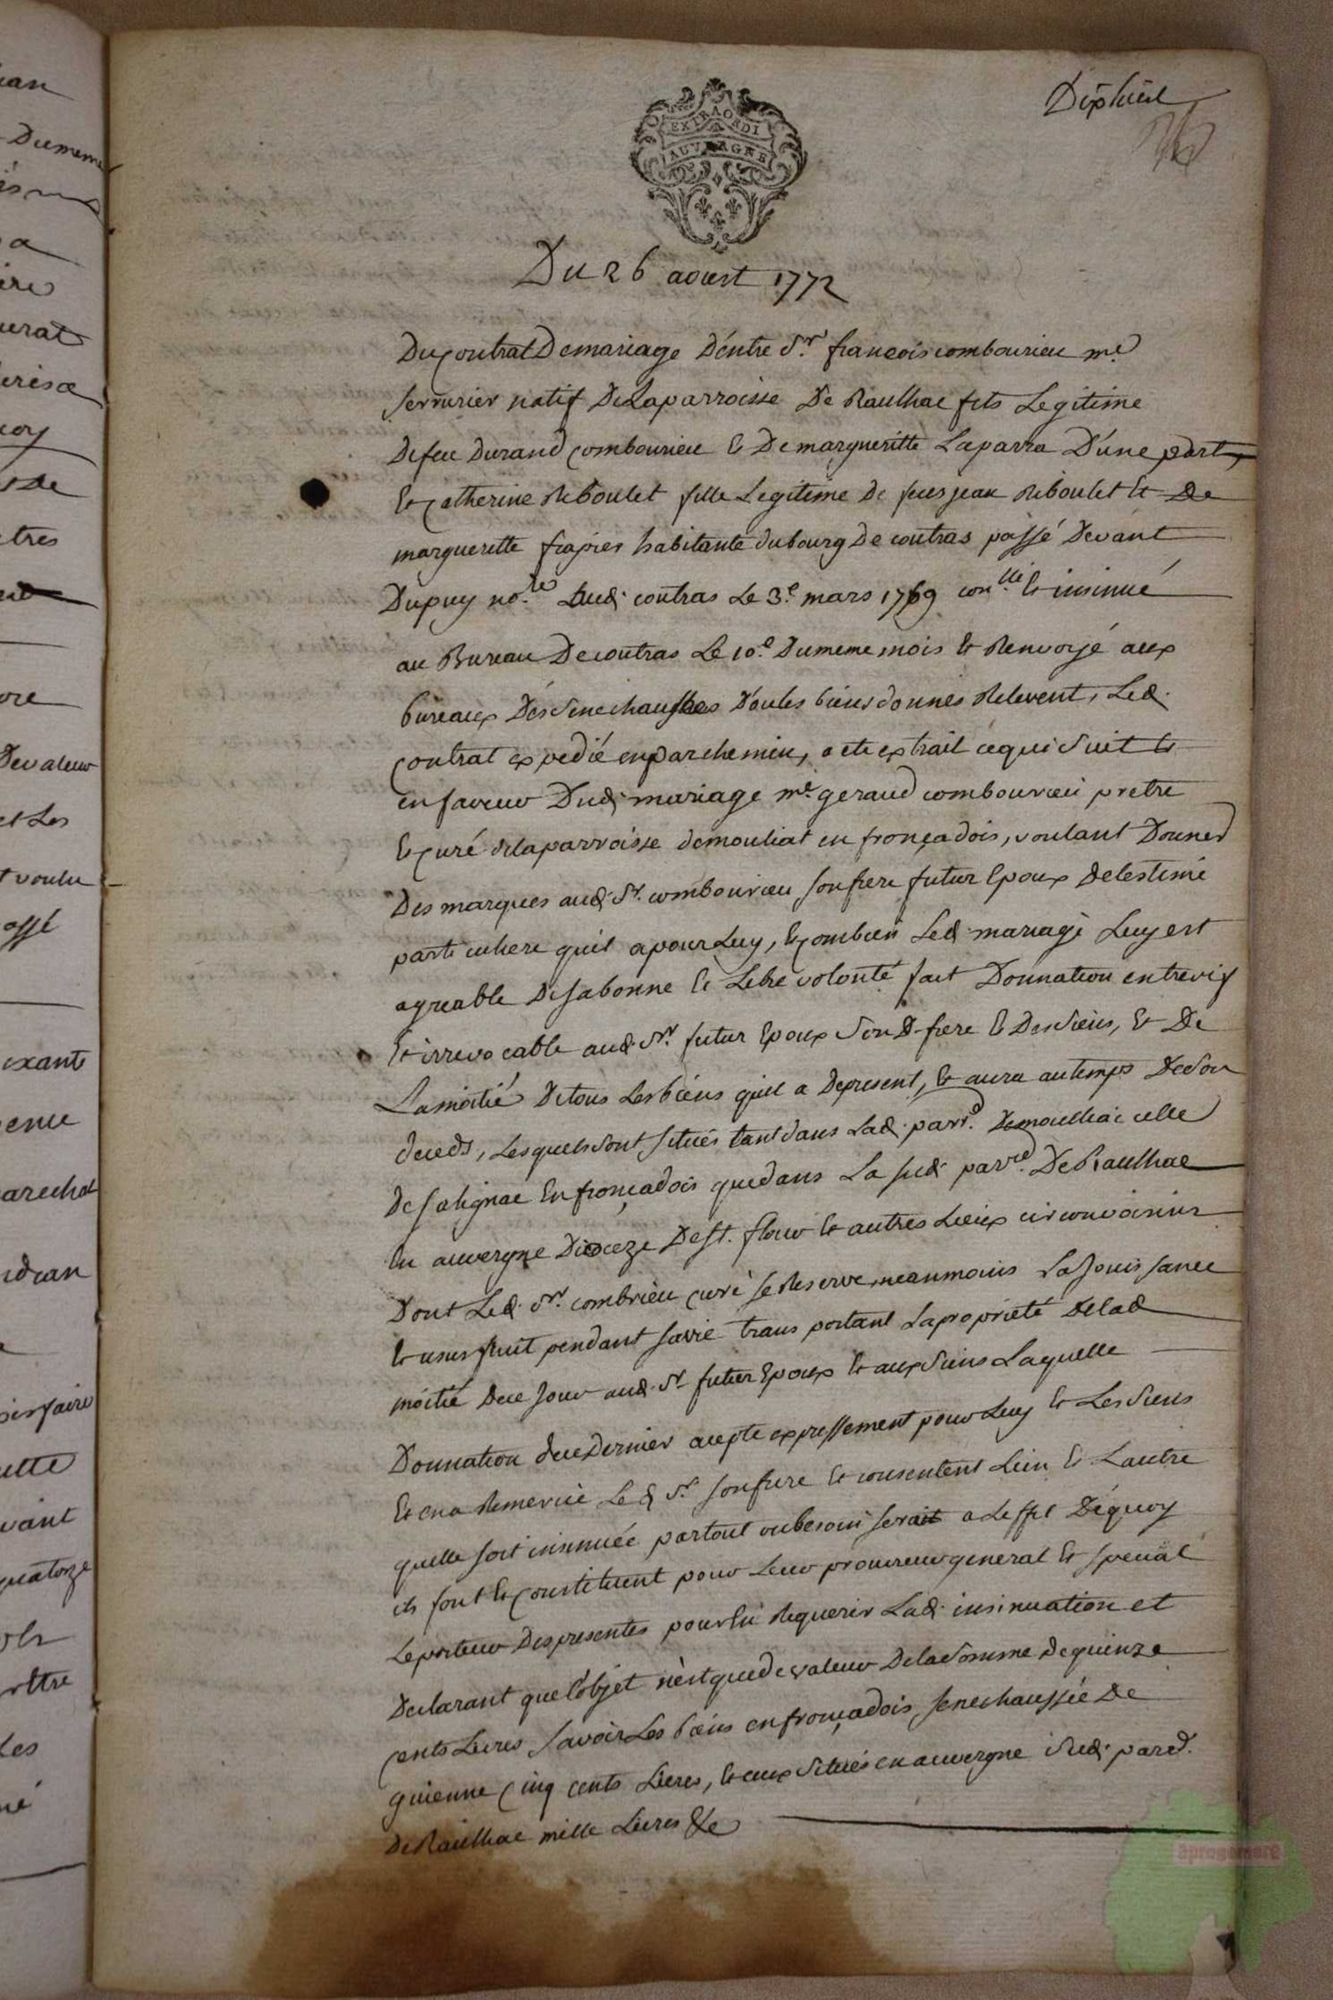 Dixhuit
EXTRAORDI
AUVERGNE
Du 26 aoust 1772
Du contrat De mariage D'entre Sr. francois combourieu me.
Serrurier natif De La parroisse De Raulhac fils Legitime
De feu Durand combourieu & De margueritte Laparra D'une part,
Et catherine Reboulet fille Legitime De feu jean Riboulet Et De
marguerette habitante du bourg De contras passé Devant
Dupuy no.re Dud. contras Le 3.e mars 1769 con.llé & insinué
au Bureau De contras Le 10.e Du meme mois & Renvoyé aux
bureaux Des Senechaussees D'ou les biens donnés Relevent, Led.
contrat expedié en parchemin, a ete extrait ce qui Suit Et
en faveur Dud. mariage me. geraud combourieu pretre
Et curé de la parroisse de mouliat en fronçadois, voulant Donner
Des marques aud. Sr. combourieu son frere futur Epoux De lestime
particuliere quil a pour Luy, Et combien Led. mariage Luy est
agreable De sa bonne Et Libre volonté fait Donnation entrevif
Et irrevocable aud. Sr. futur Epoux Son D. frere & Des Siens, Et De
La moitié De tous Les biens quil a De present, Et aura au temps De Son
deceds, Lesquels sont situés tant dans Lad. parr.e De moulliac celle
De Salignac En fronçadois que dans La sud. parr.e De Raulhac
En auvergne Dioceze De St. flour Et autres Lieux circonvoisins
Dont Led. Sr. combrieu curé se Reserve neanmoins La Jouissance
Et usufruit pendant sa vie transportant La proprieté De lad.
moitié De ce Jour aud. Sr. futur Epoux Et aux Siens Laquelle
Donnation ce Dernier accepte expressement pour Luy Et Les Siens
Et en a Remercié Led. Sr. son frere Et consentent Lun Et Lautre
quelle soit insinuée partout ou besoin serait a Leffet De quoy
ils font Et constituent pour Leur procureur general Et special
Le porteur Des presentes pour En Requerir Lad. insinuation et
Declarant que l'objet n'est que de valeur De la Somme De quinze
cents Livres savoir Les biens en fronçadois senechaussée De
guienne cinq cents Livres, Et ceux situés en auvergne Sud. par.e
De Raulhac mille Livres &c
aprogemere